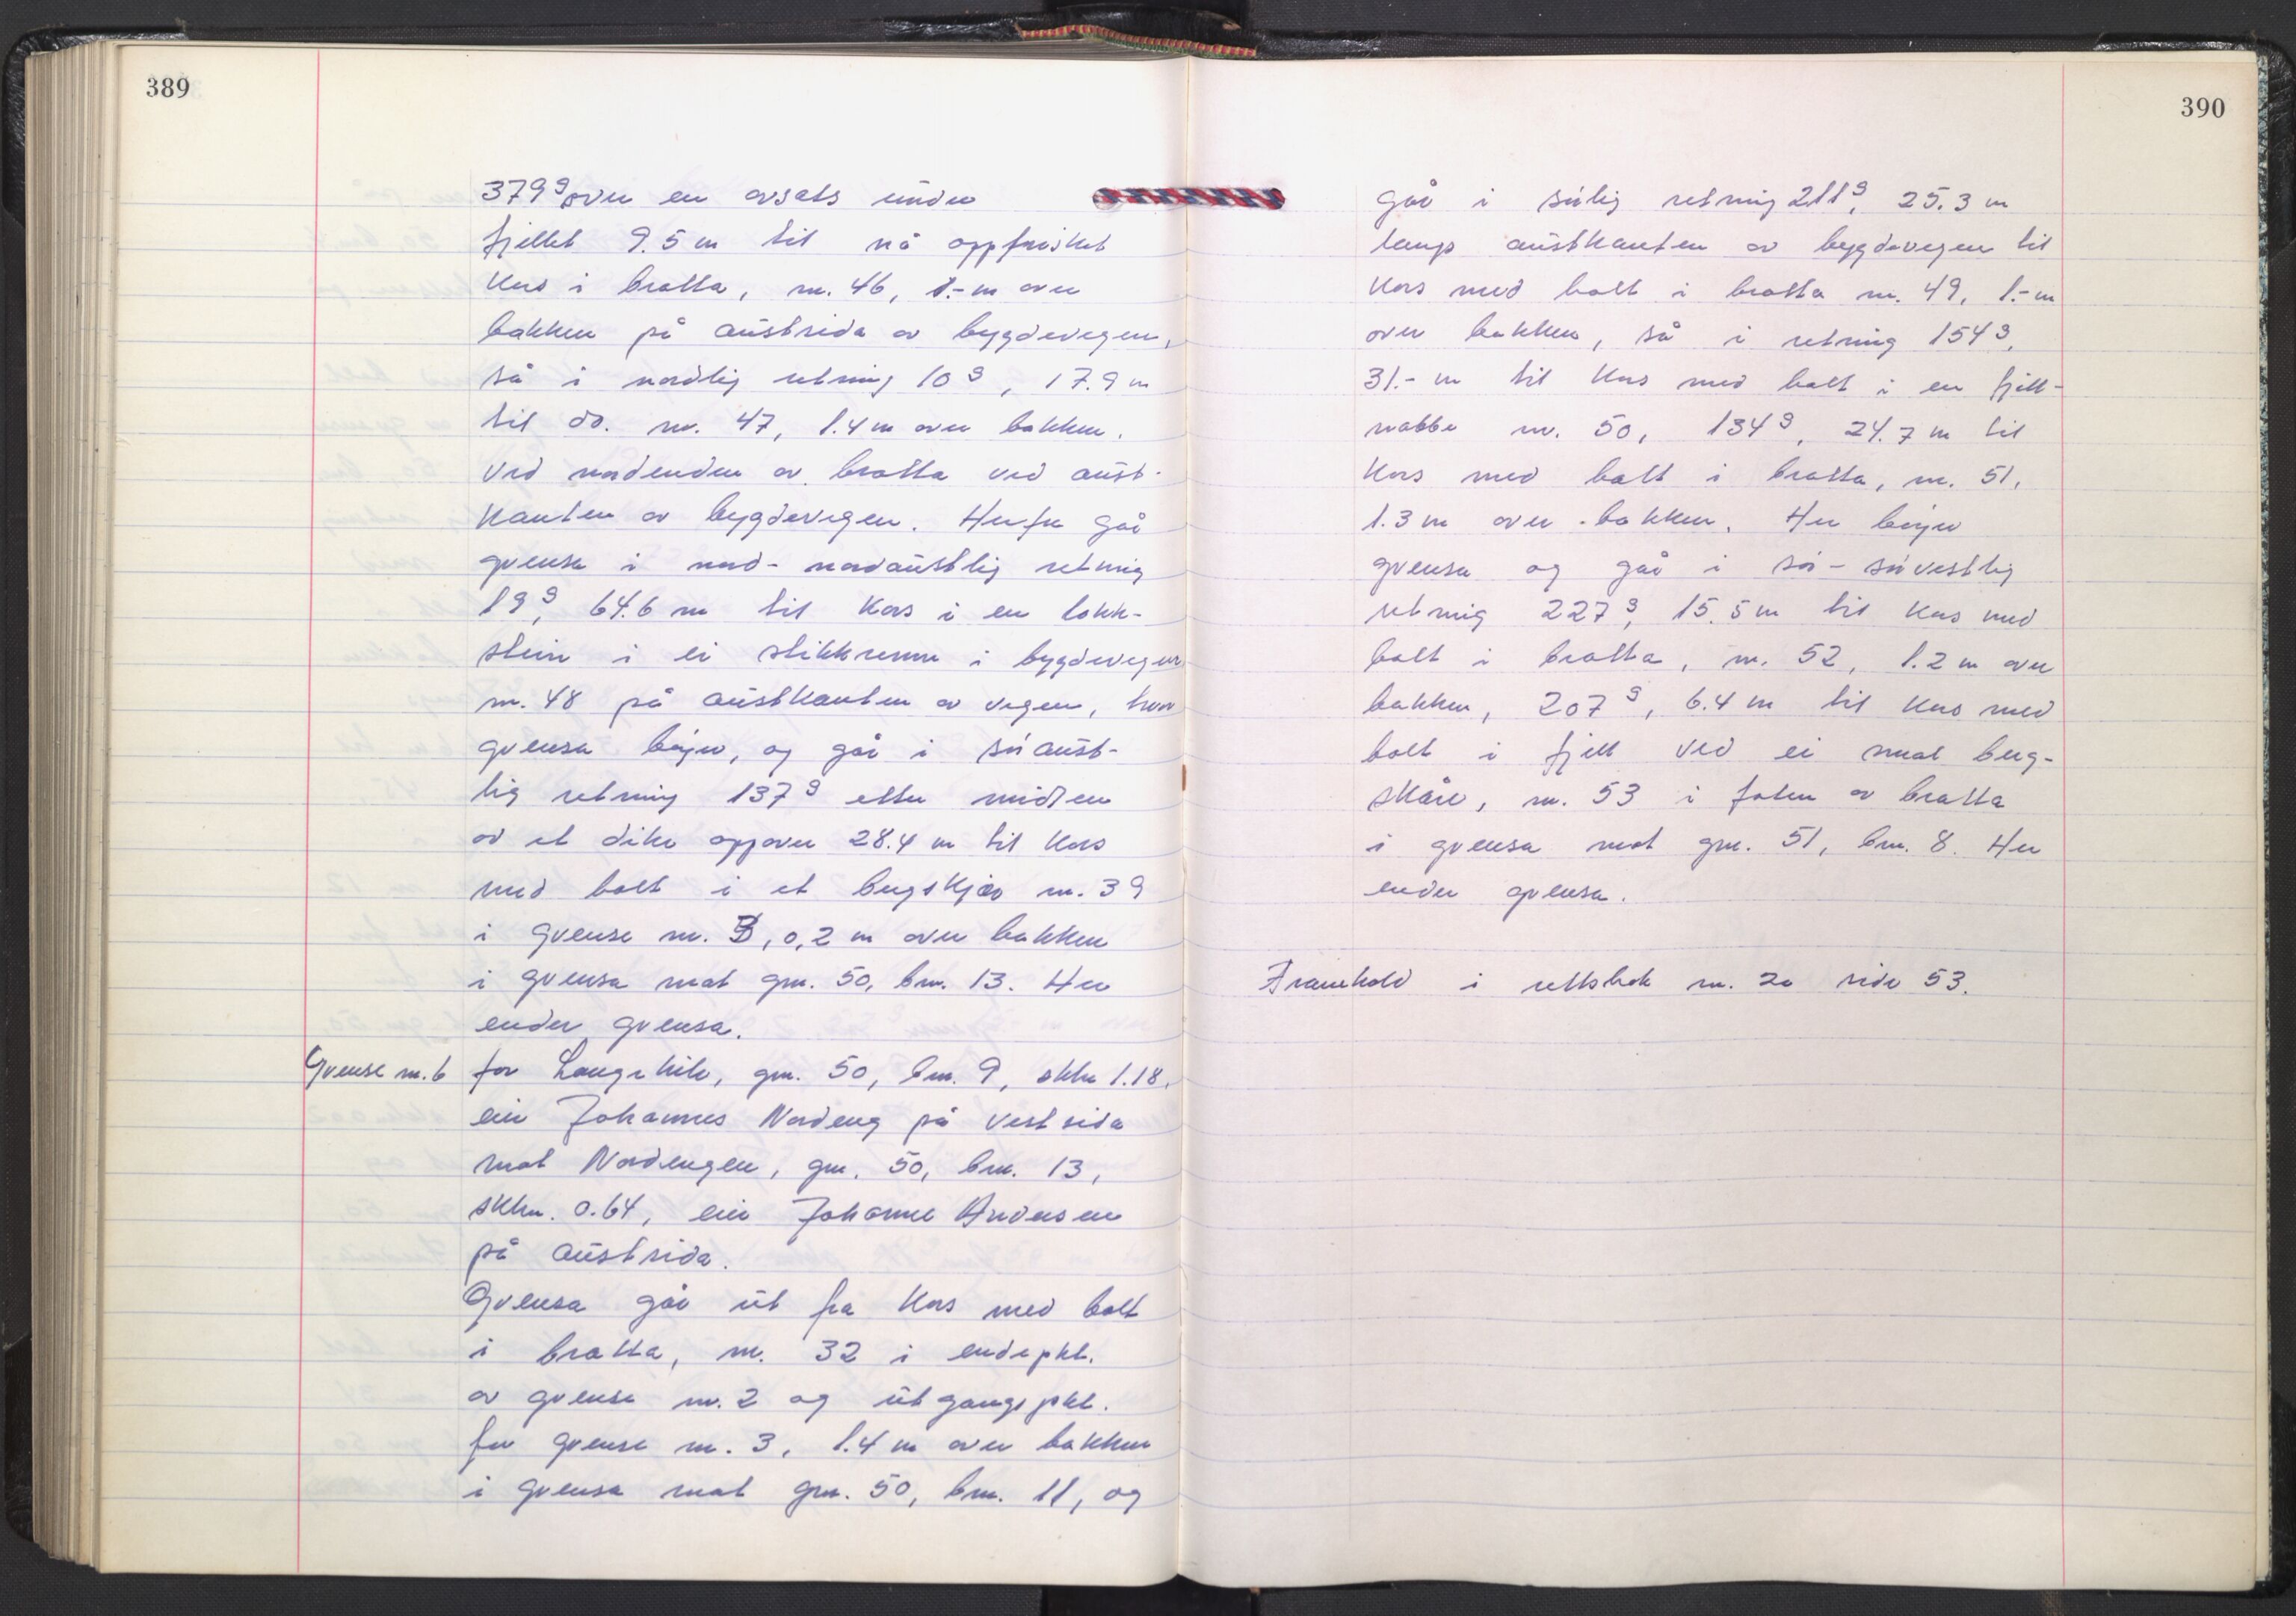 389
379ᵍ over en avsats under
fjellet 9.5 m til nå oppfrisket
kors i bratta, nr. 46, 1.- m over
bakken på austsida av bygdevegen,
så i nordlig retning 10ᵍ, 17.9 m
til do. nr. 47, 1.4 m over bakken.
ved nordenden av bratta ved aust-
kanten av bygdevegen. Herfra går
grensa i nord-nordaustlig retning
19ᵍ, 64.6 m til kors i en lokk-
stein i ei stikkrenne i bygdevegen
nr. 48 på austkanten av vegen, hvor
grensa bøyer, og går i søraust-
lig retning 137ᵍ etter midten
av et dike oppover 28.4 m til kors
med bolt i et bergskjær nr. 39
i grense nr. 3, 0,2 m over bakken
i grensa mot gnr. 50, bnr. 13. Her
ender grensa.
Grense nr. 6 for Langslite, gnr. 50, bnr. 9, skm 1.18.
eier Johannes Nordeng på vestsida
mot Nordengen, gnr. 50, bnr. 13,
skm. 0.64, eier Johanne Andersen
på austsida.
Grensa går ut fra kors med bolt
i bratta, nr. 32 i endepkt.
av grense nr. 2 og utgangspkt.
for grense nr. 3, 1.4 m over bakken
i grensa mot gnr. 50, bnr. 11, og
390
går i sørlig retning 211ᵍ, 25.3 m
langs austkanten av bygdevegen til
kors med bolt i bratta nr. 49, 1.- m
over bakken, så i retning 154ᵍ,
31.- m til kors med bolt i en fjell-
nabbe nr. 50, 134ᵍ, 24.7 m til
kors med bolt i bratta, nr. 51,
1.3 m over bakken. Her bøyer
grensa og går i sør-sørvestlig
retning 227ᵍ, 15.5 m til kors med
bolt i bratta, nr. 52, 1.2 m over
bakken, 207ᵍ, 6.4 m til kors med
bolt i fjell ved ei smal berg-
skåre, nr. 53 i foten av bratta
i grensa mot gnr. 51, bnr. 8. Her
ender grensa.
Framhold i rettsbok nr. 20 side 53.